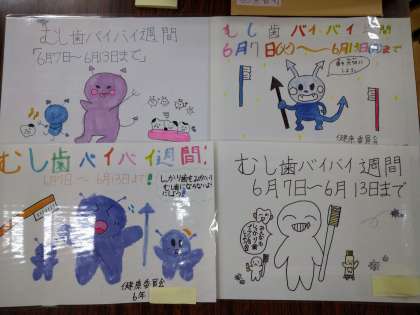 むし歯バイバイ週間
「6月7日〜6月13日まで」
むし歯バイバイ週間
6月7日(水)〜6月13日まで
歯を大切に
しよう。
健康委員会
むし歯バイバイ週間!
6月7日〜6月13日まで!
しっかり歯をみがいて
むし歯にならないよう
にしよう!
健康委員会
6年
むし歯バイバイ週間
6月7日〜6月13日まで